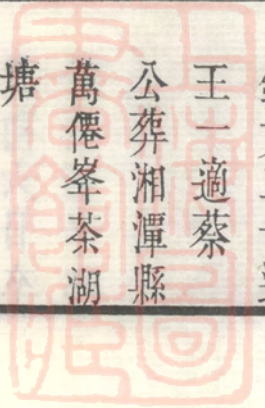 王一適蔡
公葬湘潭縣
萬僊峯茶湖
塘